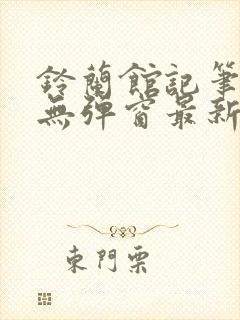 鈴蘭館記筆
無彈窗最新
東門栗